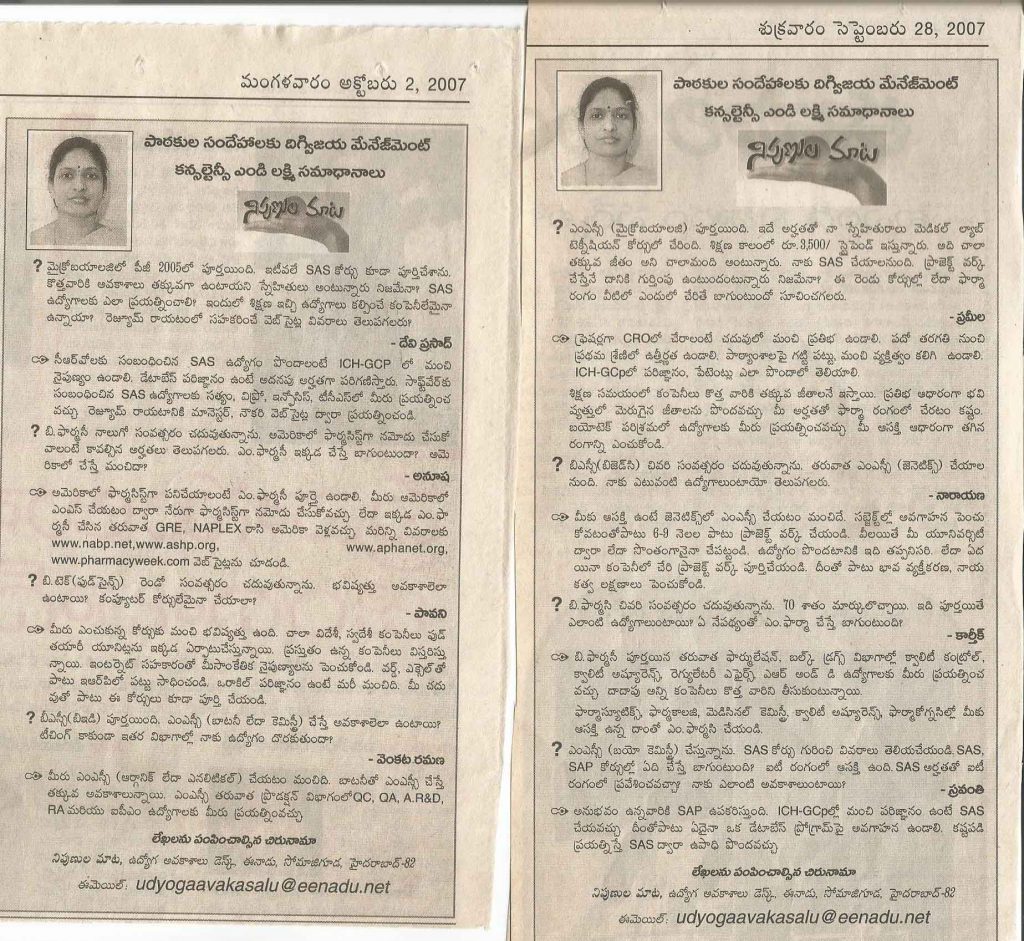 మంగళవారం అక్టోబరు 2, 2007
పాఠకుల సందేహాలకు దిగ్విజయ మేనేజ్‌మెంట్
కన్సల్టెన్సీ ఎండి లక్ష్మి సమాధానాలు
నిపుణుల మాట
? మైక్రోబయాలజిలో పీజీ 2005లో పూర్తయింది. ఇటీవలే SAS కోర్సు కూడా పూర్తిచేశాను.
కొత్తవారికి అవకాశాలు తక్కువగా ఉంటాయని స్నేహితులు అంటున్నారు నిజమేనా? SAS
ఉద్యోగాలకు ఎలా ప్రయత్నించాలి? ఇందులో శిక్షణ ఇచ్చి ఉద్యోగాలు కల్పించే కంపెనీలేమైనా
ఉన్నాయా? రెజ్యూమ్ రాయటంలో సహకరించే వెబ్‌సైట్ల వివరాలు తెలుపగలరు?
- దేవి ప్రసాద్
సీఆర్‌వోలకు సంబంధించిన SAS ఉద్యోగం పొందాలంటే ICH-GCP లో మంచి
నైపుణ్యం ఉండాలి. డేటాబేస్ పరిజ్ఞానం ఉంటే అదనపు అర్హతగా పరిగణిస్తారు. సాఫ్ట్‌వేర్‌కు
సంబంధించిన SAS ఉద్యోగాలకు సత్యం, విప్రో, ఇన్ఫోసిస్, టీసీఎస్‌లో మీరు ప్రయత్నించ
వచ్చు. రెజ్యూమ్ రాయటానికి మానెస్టర్, నౌకరి వెబ్‌సైట్ల ద్వారా ప్రయత్నించండి.
? బి.ఫార్మసీ నాలుగో సంవత్సరం చదువుతున్నాను. అమెరికాలో ఫార్మసిస్ట్‌గా నమోదు చేసుకో
వాలంటే కావల్సిన అర్హతలు తెలుపగలరు. ఎం.ఫార్మసీ ఇక్కడ చేస్తే బాగుంటుందా? అమె
రికాలో చేస్తే మంచిదా?
- అనూష
అమెరికాలో ఫార్మసిస్ట్‌గా పనిచేయాలంటే ఎం.ఫార్మసీ పూర్తై ఉండాలి. మీరు అమెరికాలో
ఎంఎస్ చేయటం ద్వారా నేరుగా ఫార్మసిస్ట్‌గా నమోదు చేసుకోవచ్చు లేదా ఇక్కడ ఎం.ఫా
ర్మసీ చేసిన తరువాత GRE, NAPLEX రాసి అమెరికా వెళ్లవచ్చు. మరిన్ని వివరాలకు
www.nabp.net,www.ashp.org, www.aphanet.org,
www.pharmacyweek.com వెబ్‌సైట్లను చూడండి.
? బి.టెక్(ఫుడ్‌సైన్స్) రెండో సంవత్సరం చదువుతున్నాను. భవిష్యత్తు అవకాశాలెలా
ఉంటాయి? కంప్యూటర్ కోర్సులేమైనా చేయాలా?
- పావని
మీరు ఎంచుకున్న కోర్సుకు మంచి భవిష్యత్తు ఉంది. చాలా విదేశీ, స్వదేశీ కంపెనీలు ఫుడ్
తయారీ యూనిట్లను ఇక్కడ ఏర్పాటుచేస్తున్నాయి. ప్రస్తుతం ఉన్న కంపెనీలు విస్తరిస్తు
న్నాయి. ఇంటర్నెట్ సహకారంతో మీసాంకేతిక నైపుణ్యాలను పెంచుకోండి. వర్డ్, ఎక్సెల్‌తో
పాటు ఇఆర్‌పిలో పట్టు సాధించండి. ఒరాకిల్ పరిజ్ఞానం ఉంటే మరీ మంచిది. మీ చదు
వుతో పాటు ఈ కోర్సులు కూడా పూర్తి చేయండి.
? బీఎస్సీ(బిఇడి) పూర్తయింది. ఎంఎస్సీ (బాటనీ లేదా కెమిస్ట్రీ) చేస్తే అవకాశాలెలా ఉంటాయి?
టీచింగ్ కాకుండా ఇతర విభాగాల్లో నాకు ఉద్యోగం దొరకుతుందా?
- వెంకట రమణ
మీరు ఎంఎస్సీ (ఆర్గానిక్ లేదా ఎనలిటికల్) చేయటం మంచిది. బాటనీతో ఎంఎస్సీ చేస్తే
తక్కువ అవకాశాలున్నాయి. ఎంఎస్సీ తరువాత ప్రొడక్షన్ విభాగంలో QC, QA, A.R&D,
RA మరియు ఐపీఎం ఉద్యోగాలకు మీరు ప్రయత్నించవచ్చు.
లేఖలను పంపించాల్సిన చిరునామా
నిపుణుల మాట, ఉద్యోగ అవకాశాలు డెస్క్, ఈనాడు, సోమాజిగూడ, హైదరాబాద్-82
ఈమెయిల్: udyogaavakasalu@eenadu.net
శుక్రవారం సెప్టెంబరు 28, 2007
పాఠకుల సందేహాలకు దిగ్విజయ మేనేజ్‌మెంట్
కన్సల్టెన్సీ ఎండి లక్ష్మి సమాధానాలు
నిపుణుల మాట
? ఎంఎస్సీ (మైక్రోబయాలజి) పూర్తయింది. ఇదే అర్హతతో నా స్నేహితురాలు మెడికల్ ల్యాబ్
టెక్నీషియన్ కోర్సులో చేరింది. శిక్షణ కాలంలో రూ.3,500/ స్టైపెండ్ ఇస్తున్నారు. అది చాలా
తక్కువ జీతం అని చాలామంది అంటున్నారు. నాకు SAS చేయాలనుంది. ప్రాజెక్ట్ వర్క్
చేస్తేనే దానికి గుర్తింపు ఉంటుందంటున్నారు నిజమేనా? ఈ రెండు కోర్సుల్లో లేదా ఫార్మా
రంగం వీటిలో ఎందులో చేరితే బాగుంటుందో సూచించగలరు.
- ప్రమీల
ఫ్రెషర్లగా CROలో చేరాలంటే చదువులో మంచి ప్రతిభ ఉండాలి. పదో తరగతి నుంచి
ప్రథమ శ్రేణిలో ఉత్తీర్ణత ఉండాలి. పాఠ్యాంశాలపై గట్టి పట్టు, మంచి వ్యక్తిత్వం కలిగి ఉండాలి.
ICH-GCpలో పరిజ్ఞానం, పేటెంట్లు ఎలా పొందాలో తెలియాలి.
శిక్షణ సమయంలో కంపెనీలు కొత్త వారికి తక్కువ జీతాలనే ఇస్తాయి. ప్రతిభ ఆధారంగా భవి
ష్యత్తులో మెరుగైన జీతాలను పొందవచ్చు. మీ అర్హతతో ఫార్మా రంగంలో చేరటం కష్టం.
బయోటెక్ పరిశ్రమలో ఉద్యోగాలకు మీరు ప్రయత్నించవచ్చు. మీ ఆసక్తి ఆధారంగా తగిన
రంగాన్ని ఎంచుకోండి.
? బిఎస్సీ(బిజెడ్‌సి) చివరి సంవత్సరం చదువుతున్నాను. తరువాత ఎంఎస్సీ (జెనెటిక్స్) చేయాల
నుంది. నాకు ఎటువంటి ఉద్యోగాలుంటాయో తెలుపగలరు.
- నారాయణ
మీకు ఆసక్తి ఉంటే జెనెటిక్స్‌లో ఎంఎస్సీ చేయటం మంచిదే. సబ్జెక్ట్‌ల్లో అవగాహన పెంచు
కోవటంతోపాటు 6-9 నెలల పాటు ప్రాజెక్ట్ వర్క్ చేయండి. వీలయితే మీ యూనివర్సిటీ
ద్వారా లేదా సొంతంగానైనా చేపట్టండి. ఉద్యోగం పొందటానికి ఇది తప్పనిసరి. లేదా ఏద
యినా కంపెనీలో చేరి ప్రాజెక్ట్ వర్క్ పూర్తిచేయండి. దీంతో పాటు భావ వ్యక్తీకరణ, నాయ
కత్వ లక్షణాలు పెంచుకోండి.
? బి.ఫార్మసి చివరి సంవత్సరం చదువుతున్నాను. 70 శాతం మార్కులొచ్చాయి. ఇది పూర్తయితే
ఎలాంటి ఉద్యోగాలుంటాయి? ఏ నేపథ్యంతో ఎం.ఫార్మా చేస్తే బాగుంటుంది?
- కార్తీక్
బి.ఫార్మసీ పూర్తయిన తరువాత ఫార్ములేషన్, బల్క్ డ్రగ్స్ విభాగాల్లో క్వాలిటీ కంట్రోల్,
క్వాలిటీ అష్యూరెన్స్, రెగ్యులేటరీ ఎఫైర్స్, ఎఆర్ అండ్ డి ఉద్యోగాలకు మీరు ప్రయత్నించ
వచ్చు. దాదాపు అన్ని కంపెనీలు కొత్త వారిని తీసుకుంటున్నాయి.
ఫార్మాస్యూటిక్స్, ఫార్మకాలజి, మెడిసినల్ కెమిస్ట్రీ, క్వాలిటీ అష్యూరెన్స్, ఫార్మాకోగ్నసిల్లో మీకు
ఆసక్తి ఉన్న దాంతో ఎం.ఫార్మసి చేయండి.
? ఎంఎస్సీ (బయో కెమిస్ట్రీ) చేస్తున్నాను. SAS కోర్సు గురించి వివరాలు తెలియచేయండి. SAS,
SAP కోర్సుల్లో ఏది చేస్తే బాగుంటుంది? ఐటీ రంగంలో ఆసక్తి ఉంది. SAS అర్హతతో ఐటీ
రంగంలో ప్రవేశించవచ్చా? నాకు ఎలాంటి అవకాశాలుంటాయి?
- స్రవంతి
అనుభవం ఉన్నవారికి SAP ఉపకరిస్తుంది. ICH-GCpల్లో మంచి పరిజ్ఞానం ఉంటే SAS
చేయవచ్చు. దీంతోపాటు ఏదైనా ఒక డేటాబేస్ ప్రోగ్రామ్‌పై అవగాహన ఉండాలి. కష్టపడి
ప్రయత్నిస్తే SAS ద్వారా ఉపాధి పొందవచ్చు.
లేఖలను పంపించాల్సిన చిరునామా
నిపుణుల మాట, ఉద్యోగ అవకాశాలు డెస్క్, ఈనాడు, సోమాజిగూడ, హైదరాబాద్-82
ఈమెయిల్: udyogaavakasalu@eenadu.net